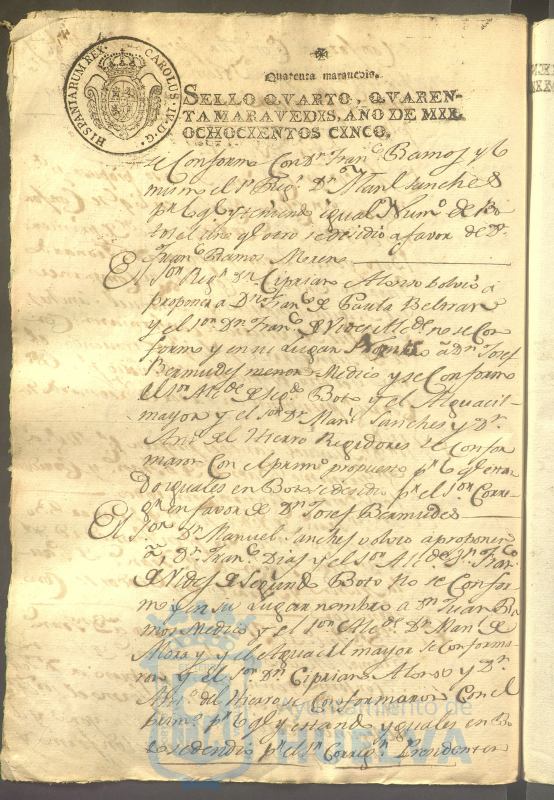 HISPANIARUM REX. CAROLUS IV. D. G.
Quarenta maravedis.
SELLO QVARTO, QVAREN-
TA MARAVEDIS, AÑO DE MIL
OCHOCIENTOS CINCO.
se Conformo Con Dn Franco Ramos y lo
mismo el Sr Regr Dn Manl Sanches
igual Numo de Bo-
tos el uno qe otro se desidio a favor de Dn
Franco Ramos Moreno
El Sor Regr Dn Cipriano Alonso bolvio a
proponer a Dn Franco de Paula Beltran
y el Sor Dn Franco de Vides Alcde no se Con-
formo y en su Lugar Propuso a Dn Josef
Bermudes menor Medico y se Conformo
el Sor Alcde de Segdo Boto y el Alguacil
mayor y el Sor Dn Manl Sanches y Dn
Anto del Hierro Regidores se Confor-
maron Con el primo propuesto pr lo qe estan-
do iguales en Botos se desidio pr el Sor Corre-
gor en favor de Dn Josef Bermudes
El Sor Dn Manuel Sanches volvio a proponer
a Dn Franco Dias y el Sor Alcde Dn Franco
de Vides de Segundo Boto No se Confor-
mo y en su Lugar nombro a Dn Juan Ra-
mos Medico y el Sor Alcde Dn Manl de
Mora y el Alguacil mayor se Conforma-
ron y el Sor Dn Cipriano Alonso y Dn
Anto del Hierro se Conformaron Con el
primo pr lo qe y estando yguales en Bo-
to se desidio pr el Sr Corregr Presidente
Ayuntamiento de
HUELVA